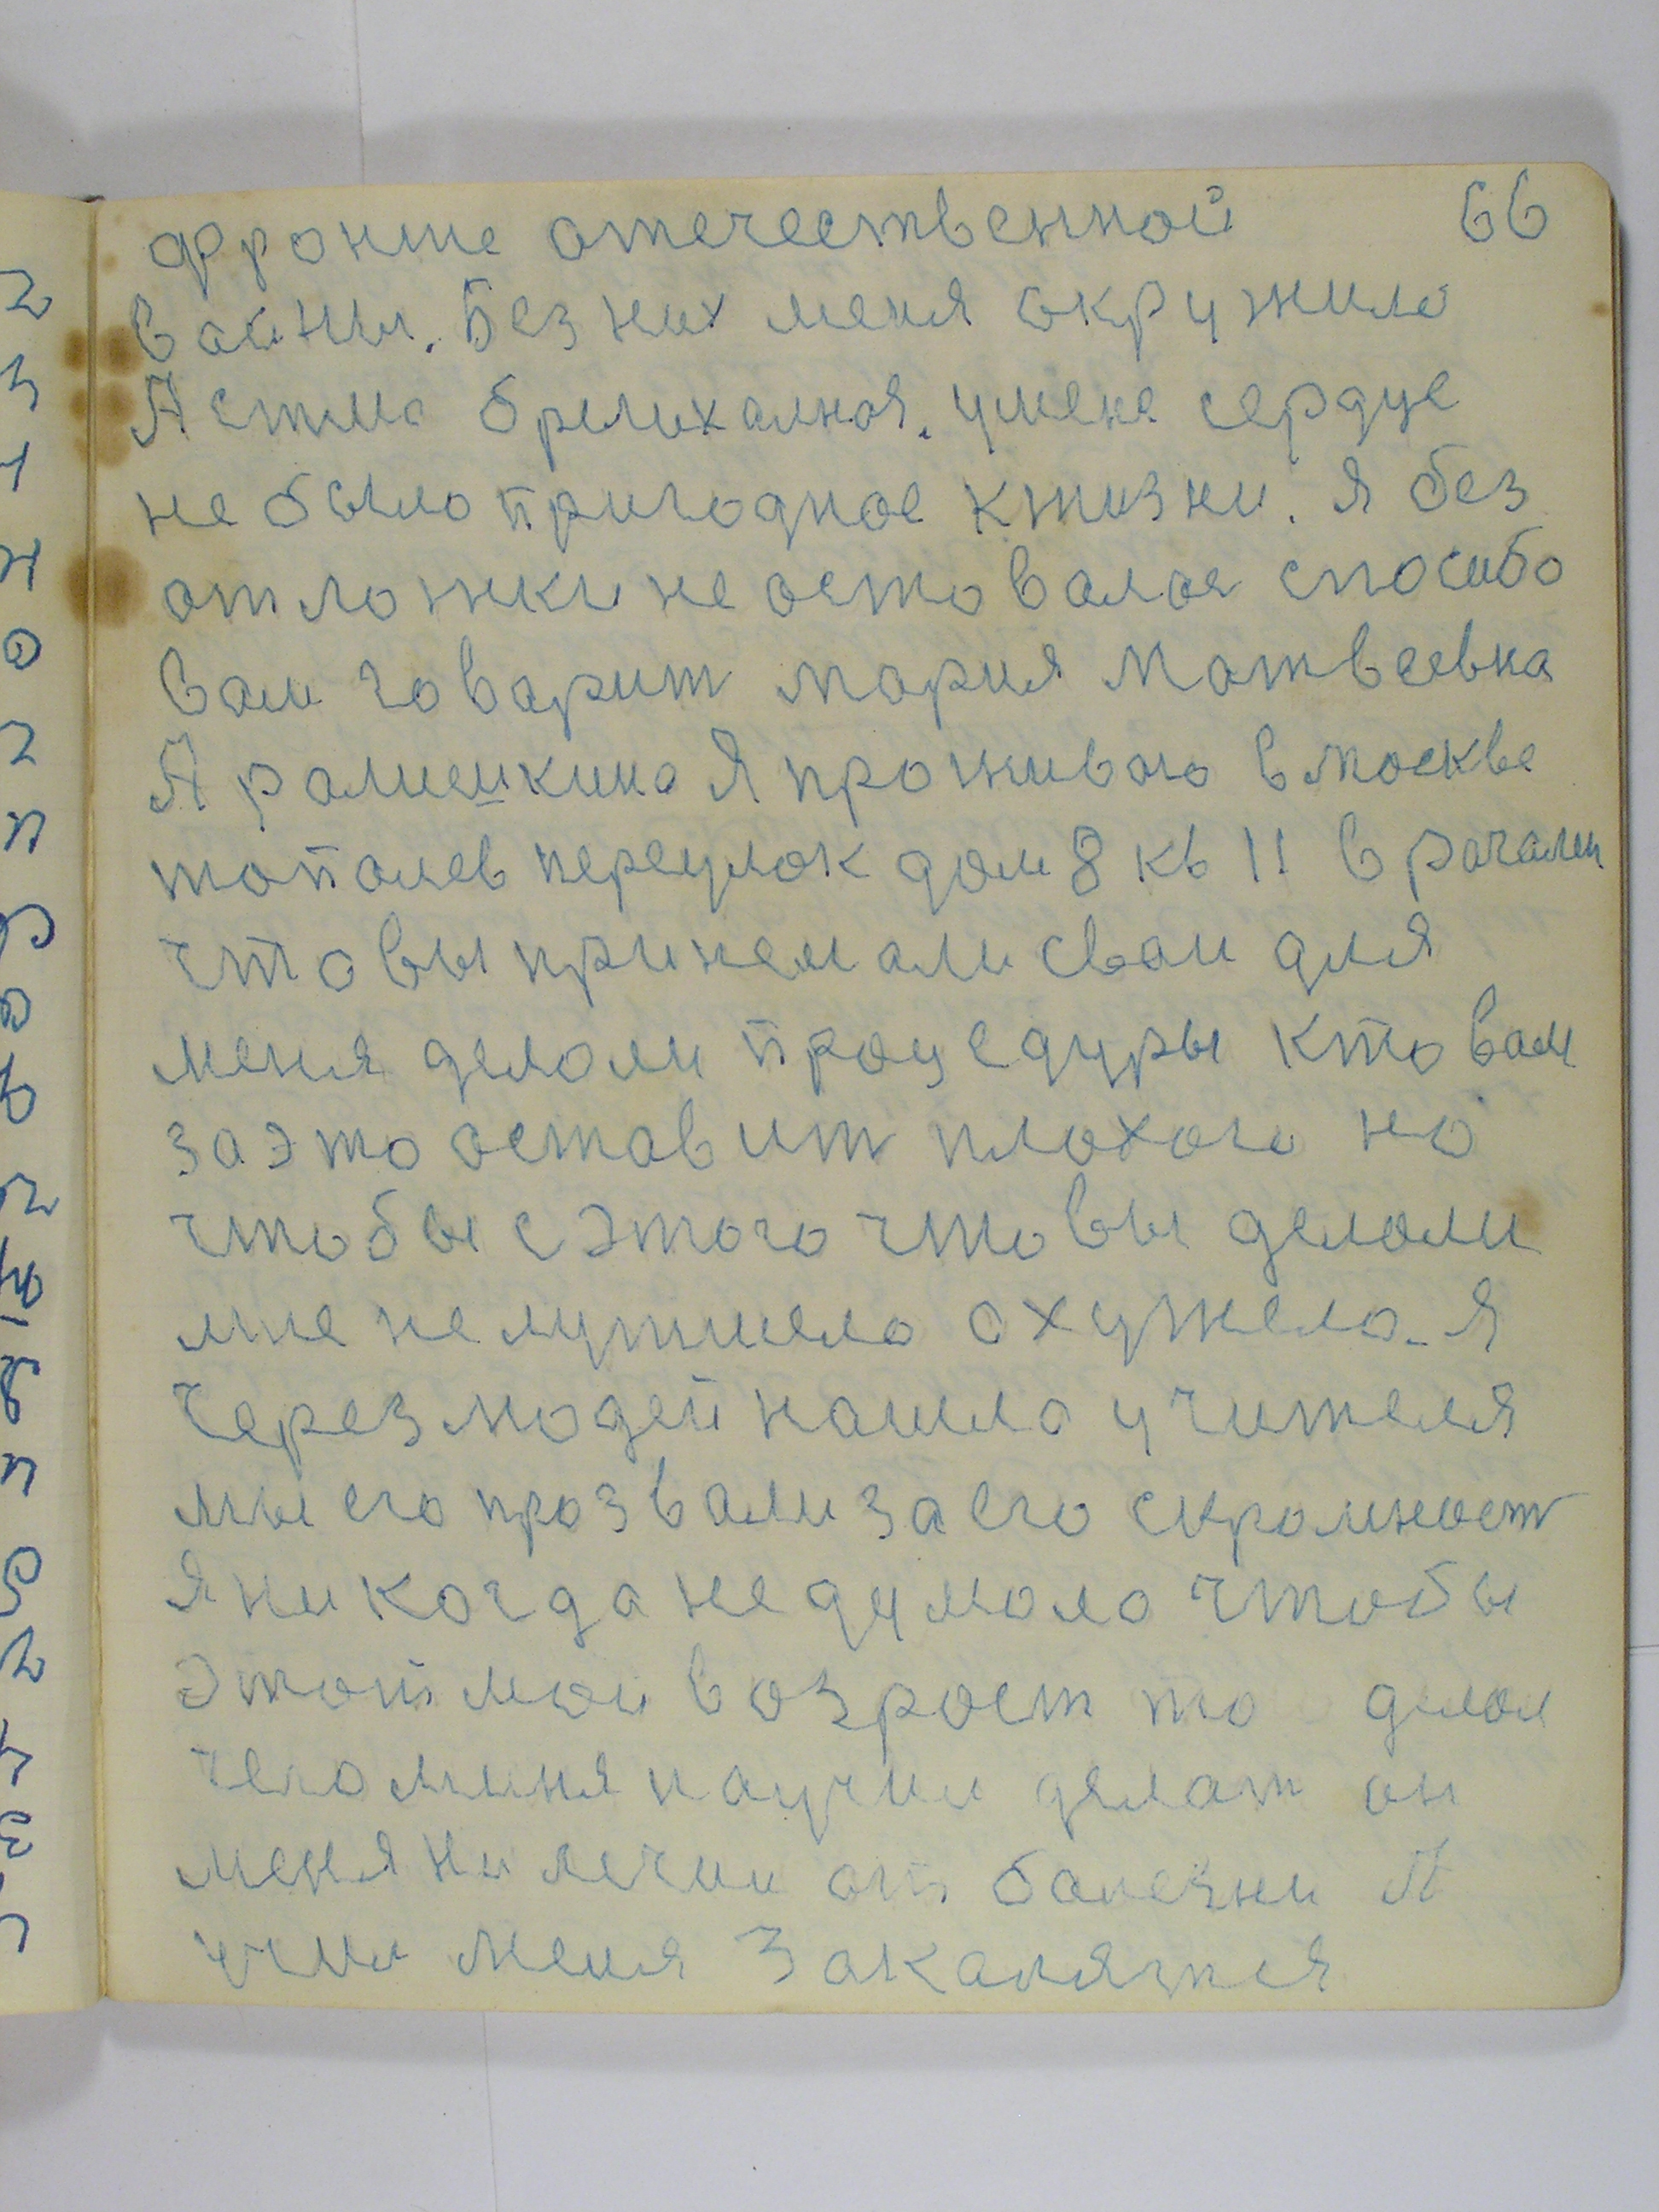 66
фронте отечественной
вайны. Без них меня окружило
Астма брыихалная. умене сердце
не было пригодное к жизни. Я без
отложки не остовалас спосибо
вам говарит Мария Матвеевна
Арамешкина Я проживаю в москве
тополев переулок дом 8 кв 11 врачами
что вы принемали сваи для
меня делоли процедуры кто вам
за это оставит плохого но
чтобы с этого что вы делоли
мне не лутшело охужело. Я
через людей нашла учителя
мы его прозвали за его скромност
Я никогда не думоло чтобы
этот мои возрост то делол
чего миня научил делат он
меня ни лечил от балезни А
учил меня Закалятся